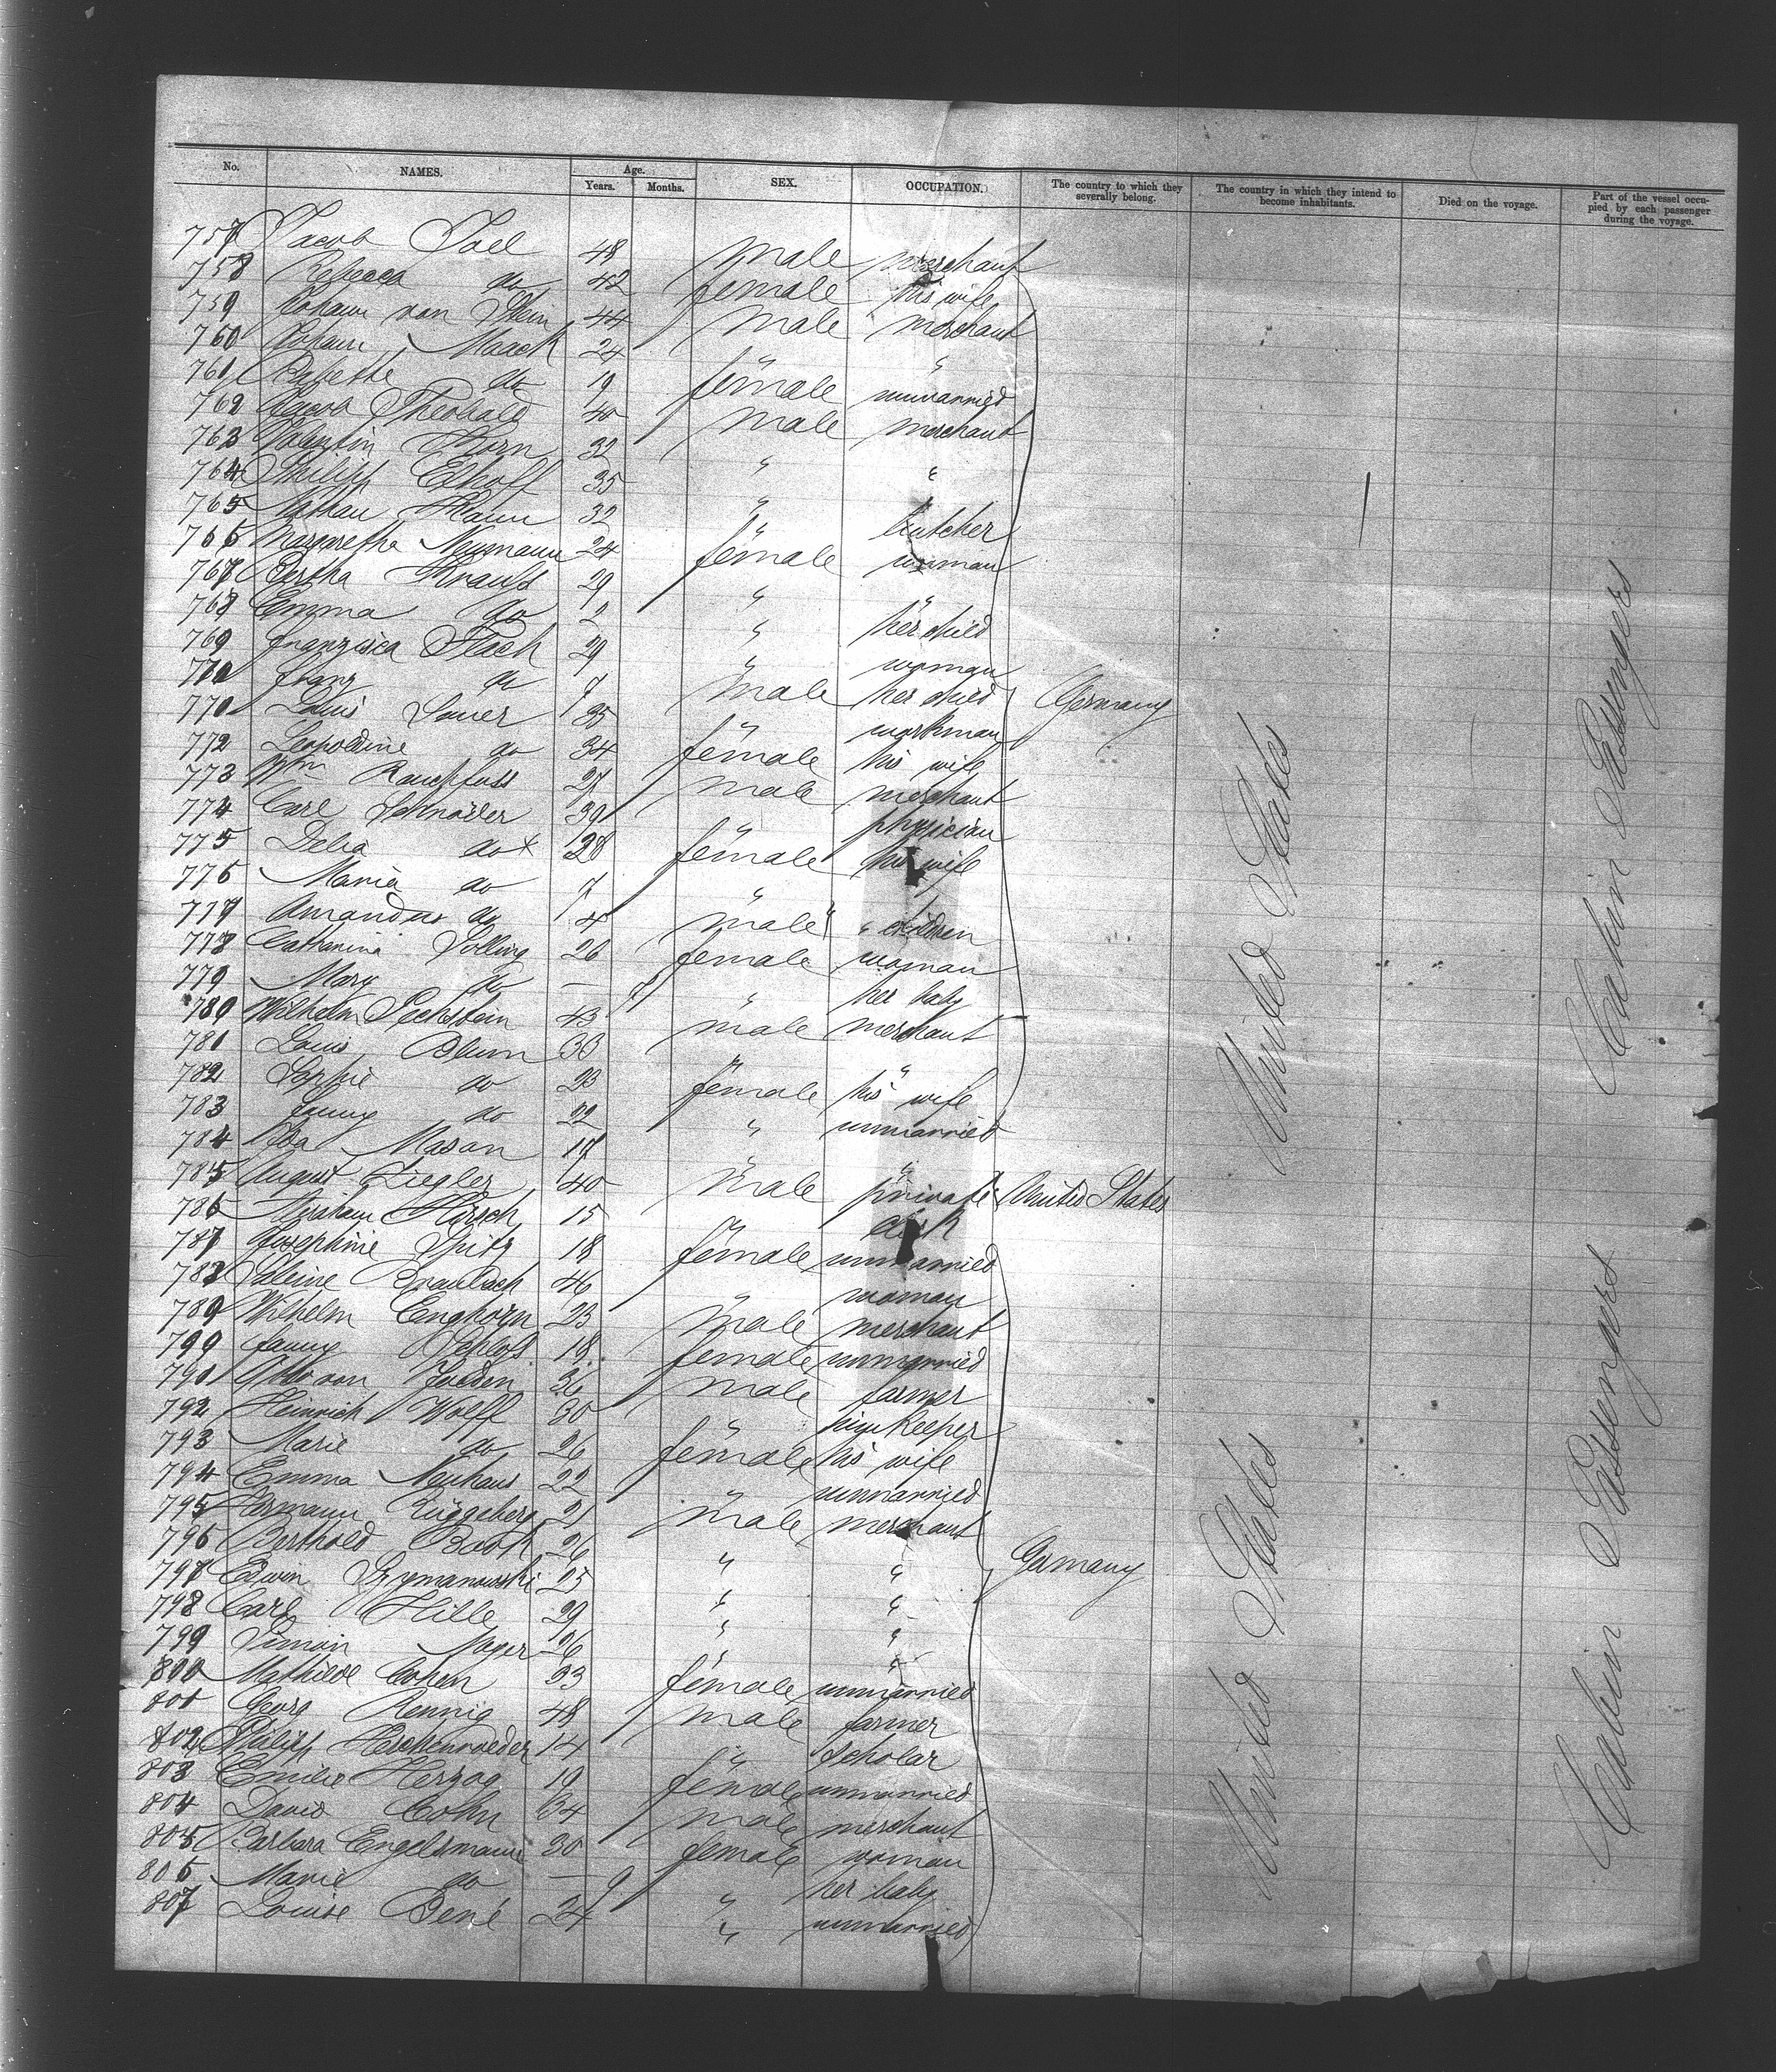 No. NAMES. Age. Years. Months. SEX. OCCUPATION. The country to which they severally belong. The country in which they intend to become inhabitants. Died on the voyage. Part of the vessel occupied by each passenger during the voyage.
757 Jacob Joel 48 male merchant
758 Rebecca do 42 female his wife
759 Johann von Stein 44 male merchant
760 Johann Maack 24 " "
761 Babette do 19 female unmarried
762 Jacob Theobald 40 male merchant
763 Valentin Horn 32 " "
764 Philipp Elhoff 35 " "
765 Nathan Hann 32 " butcher
766 Margaretha Neumann 24 female woman
767 Bertha Krauss 29 " "
768 Emma do 2 " her child
769 Franzisca Flach 29 " woman
770 Franz do 7 male her child Germany
770 Louis Sauer 35 " workman
772 Leopoldine do 34 female his wife
773 Wm Rauchfuss 27 male merchant
774 Carl Schnaider 39 " physician
775 Delia do x 28 female his wife
776 Maria do 7 " "
777 Amandus do 4 male " children
778 Catharina Solling 26 female woman
779 Mary do — " her baby
780 Wilhelm Pechstein 43 male merchant
781 Louis Blum 33 " "
782 Sophie do 23 female his wife
783 Fanny do 22 " unmarried
784 Rosa Mason 19 " "
785 August Ziegler 40 male private United States
786 Abraham Hirsch 15 " clerk
787 Josephine Spitz 18 female unmarried
788 Salome Braubach 46 " woman
789 Wilhelm Enghorn 23 male merchant
799 Fanny Schloss 18 female unmarried
791 Otto von Jułden 36 male farmer
792 Heinrich Wolff 30 " innkeeper
793 Marie do 26 female his wife
794 Emma Neuhaus 22 " unmarried
795 Hermann Rüggeberg 21 male merchant
796 Berthold Barth 26 " " Germany
797 Edwin Szymanowski 25 " "
798 Carl Hille 29 " "
799 Simon Mayer 26 " "
800 Mathilde Cohen 23 female unmarried
801 Georg Rennig 48 male farmer
802 Philipp Heschenroeder 14 " scholar
803 Emilie Herzog 19 female unmarried
804 David Cohn 34 male merchant
805 Barbara Engelsmann 30 female woman
806 Marie do — 9 " her baby
807 Louise Bené 24 " unmarried
United States
United States
Cabin Passengers
Cabin Passengers